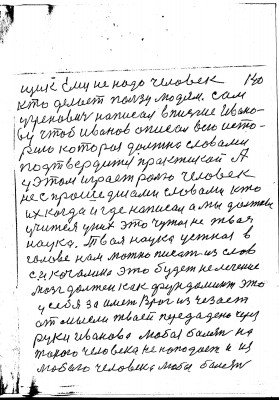 щик Ему не надо человек 130
кто делает ползу людям. сам
учренович написал в писме Ивано-
ву чтоб Иванов описал всю исто-
рию которая должна словами
подтвердится практикай А
у этом играет ролю человек
не с прошедшами словами кто
их когда и где написал а мы должны
учится у них это чужая не твая
наука. Твая наука устная в
голове нам можно писат из слов
сщикогално это будет не лечение
мозг должен как фундомент это
у себя за имет Враг изчезает
от мысли твает передадено чрез
руки Иванова любая балезн на
такого человека не нападает и из
любого человека люба балезн